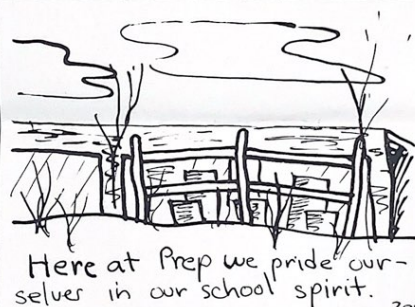 Here at Prep we pride our-
selves in our school spirit.